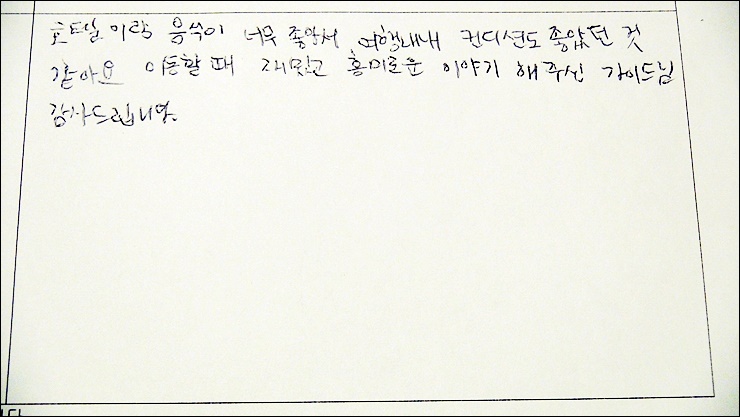 호텔이랑 음식이 너무 좋아서 여행내내 컨디션도 좋았던 것
같아요 이동할 때 재밌고 흥미로운 이야기 해주신 가이드님
감사드립니다.